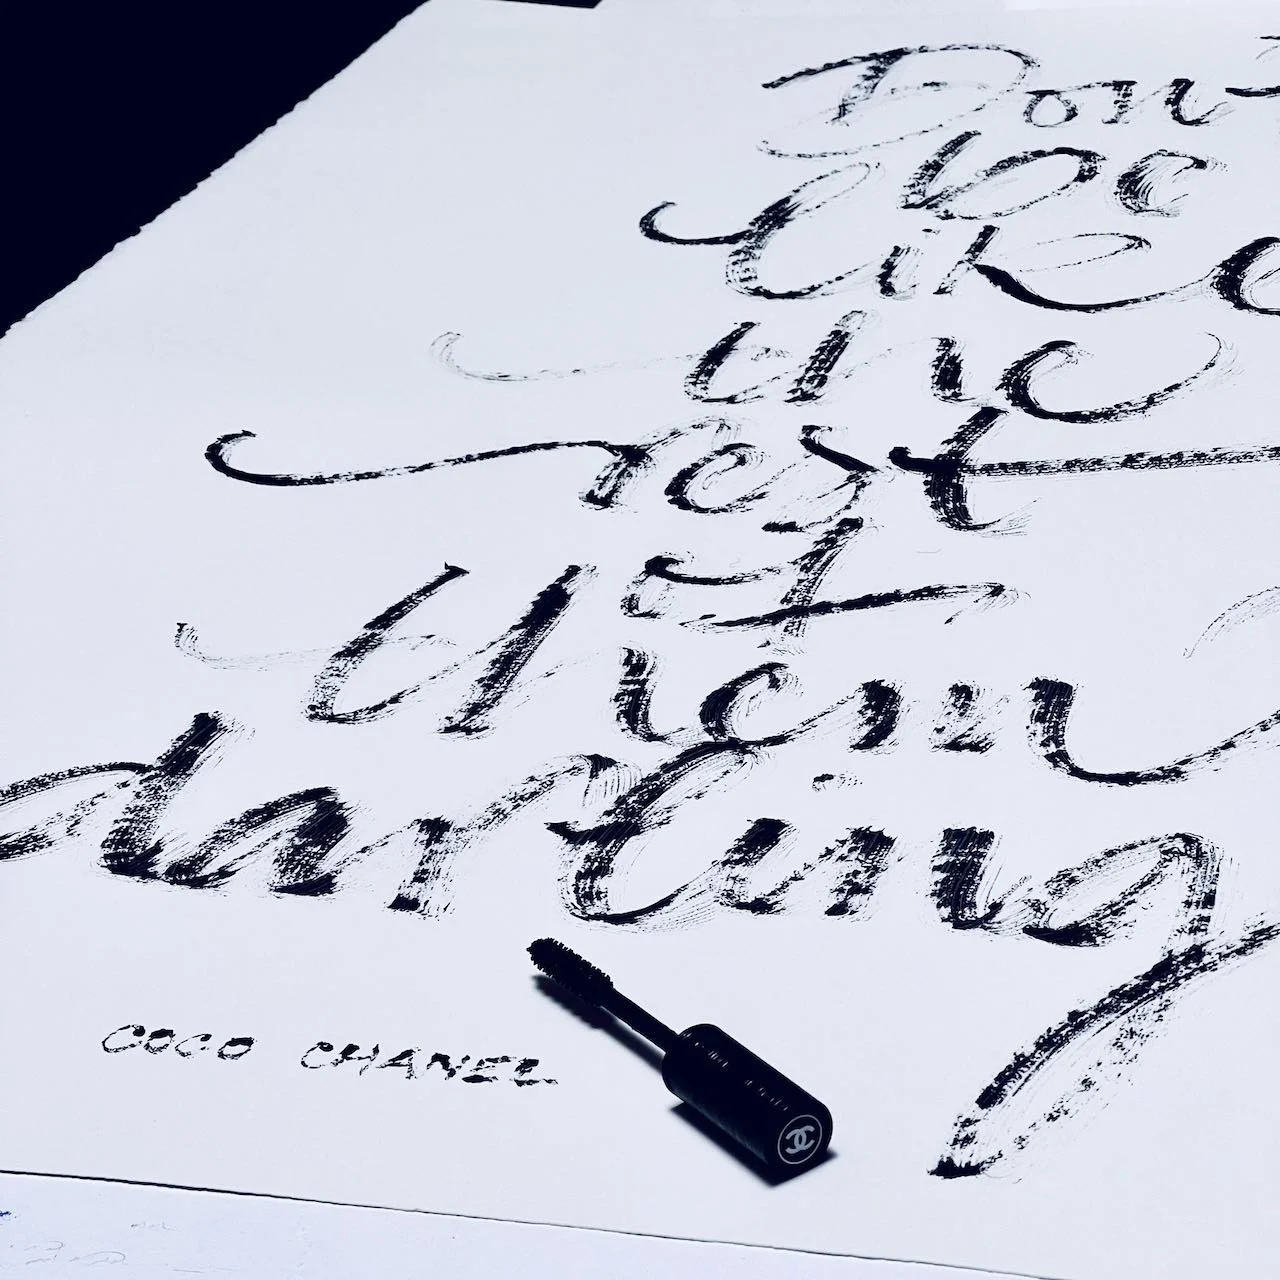 Don'
be
like
the
rest
of
them
darling
COCO CHANEL